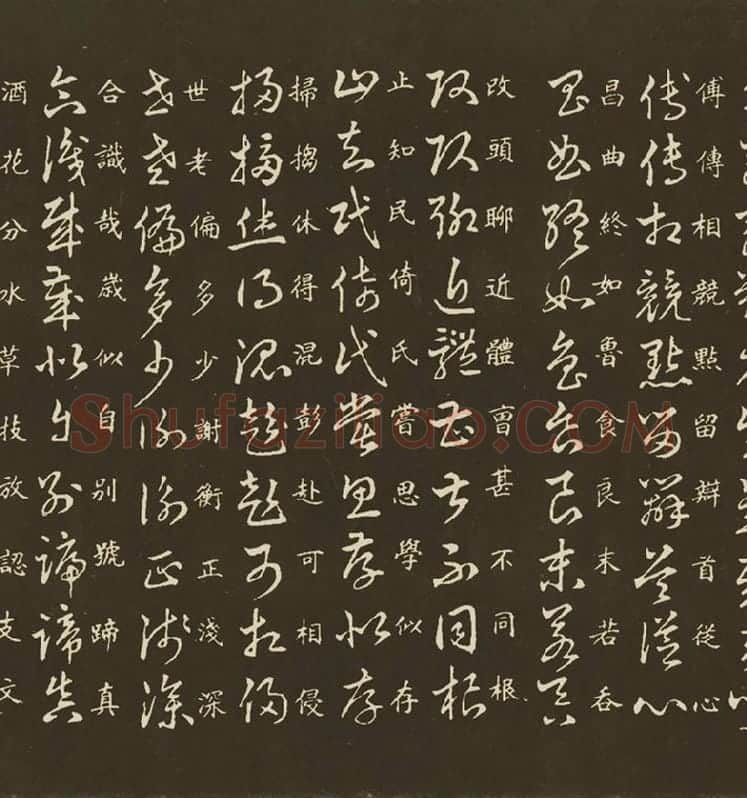 傅傳相競點留辯首從心
昌曲終如魯食良末若吞
改頭聊近體曹甚不同根
止知民倚氏嘗思學似存
掃搗休得混彭赴可相侵
世老偏多少謝衡正淺深
合識哉歲似自别號蹄真
酒花分水草技放認支文
Shufaziliao.COM